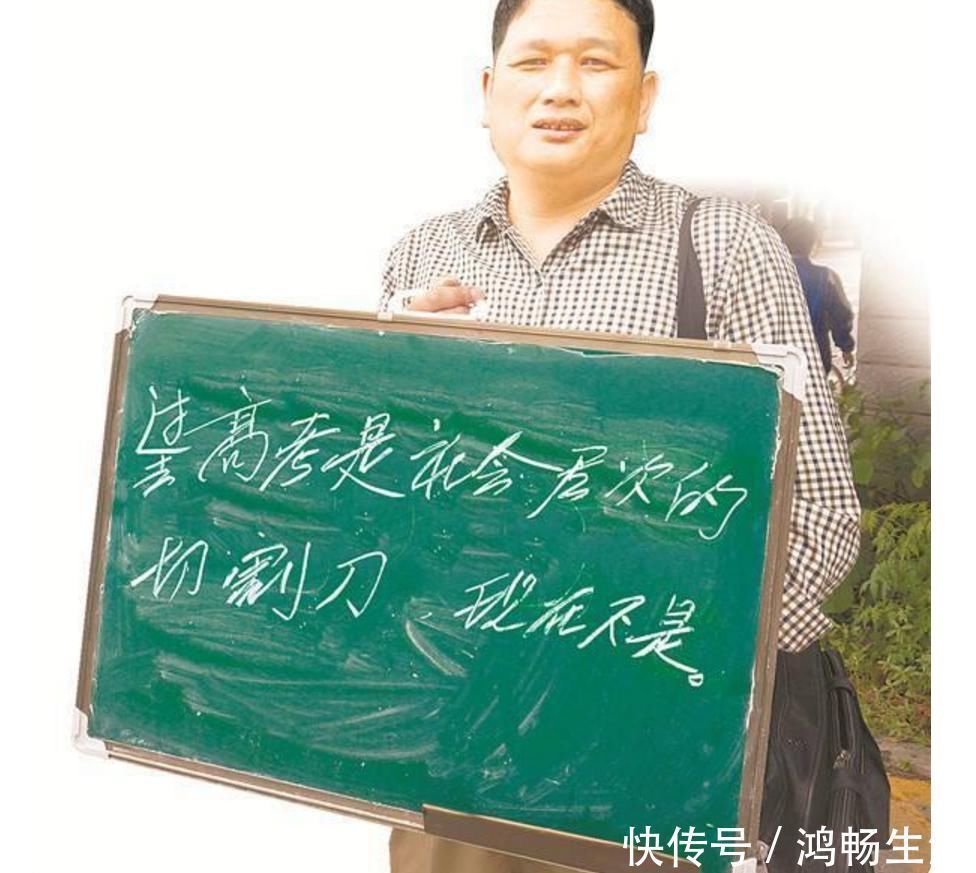 过去高考是社会层次的
切割刀、现在不是。
快传号/鸿畅生